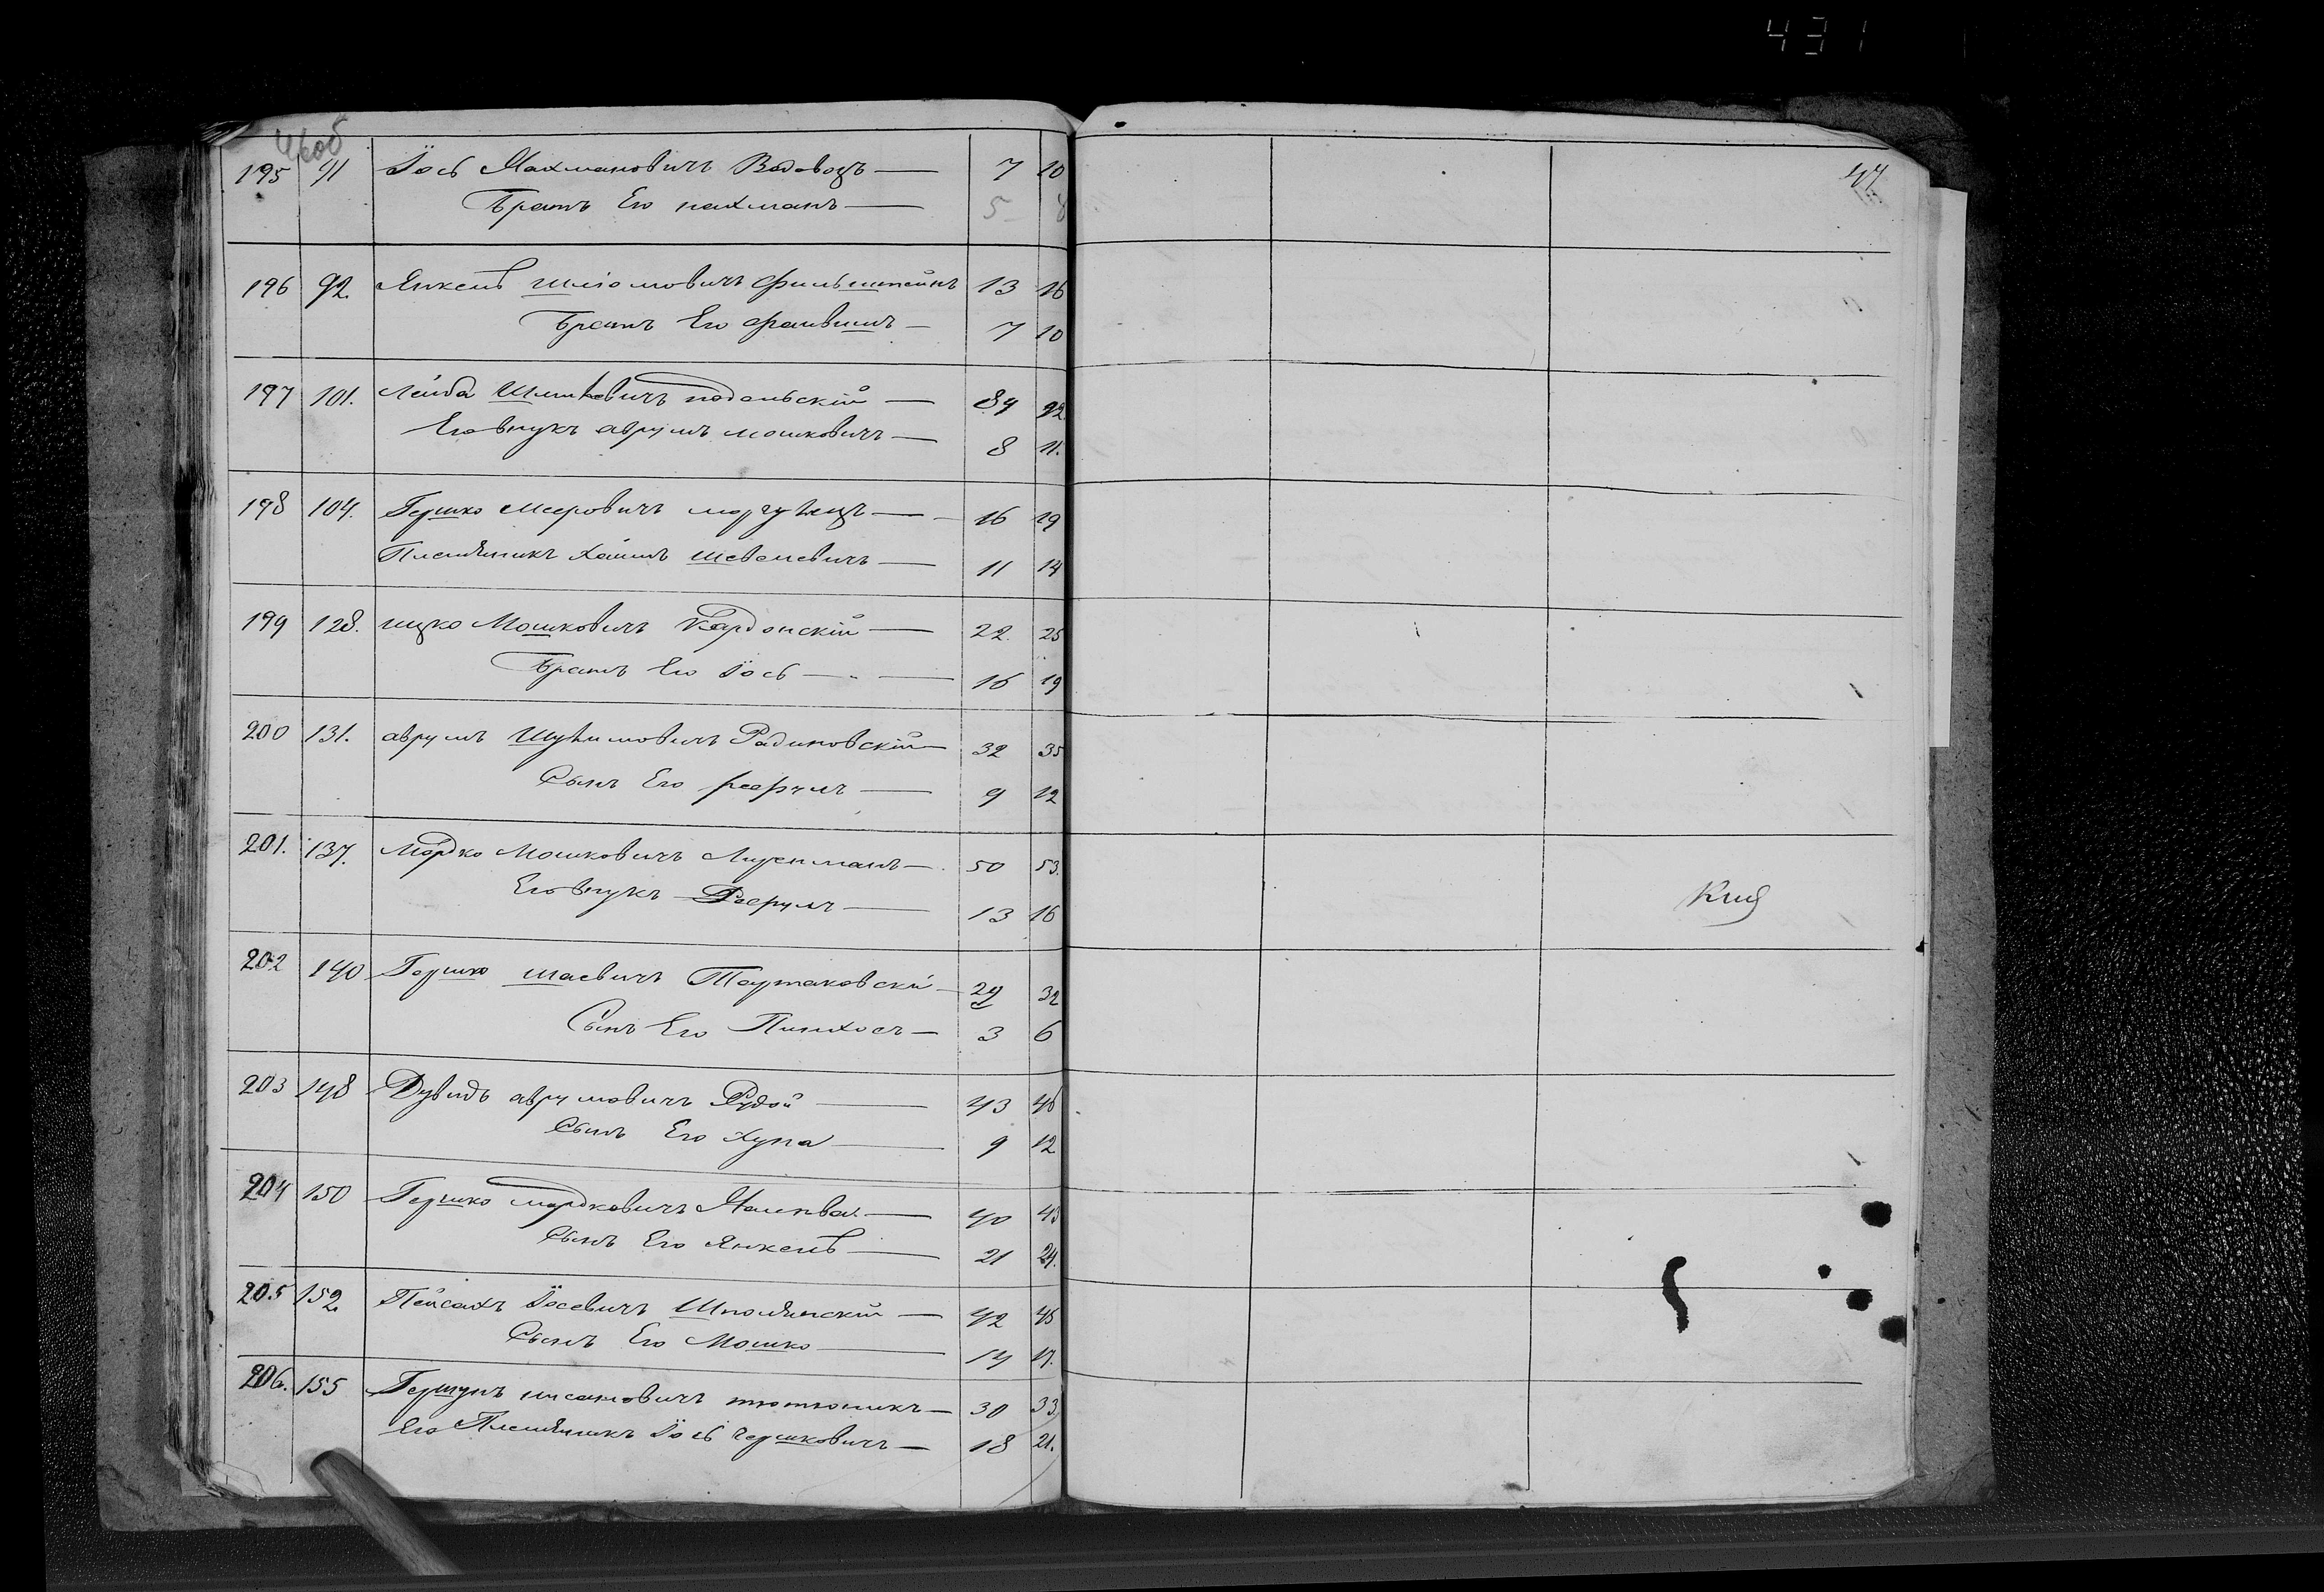 431
46об
195 91 Іось Нахмановичъ Водовозъ — 7 10
Братъ Его нахманъ — 5 8
196 92. Янкель Шліомовичъ фильштейнъ 13 16
Братъ Его фаивишъ — 7 10
197 101. Лейба Шмилевичъ подольскій — 89 92
Его внукъ аврумъ мошковичъ — 8 11.
198 104. Гершко Мееровичъ — 16 19
Племянникъ Хаимъ Шевелевичъ — 11 14
199 128. ицко Мошковичъ Кардонскій — 22. 25
Братъ Его Іось — 16 19
200 131. аврумъ Шулимовичъ Радиновскій — 32 35
Сынъ Его — 9 12
201. 137. Мордко Мошковичъ — 50 53.
Его внукъ — 13 16
202 140 Гершко шаевичъ Таутаковскій — 29 32
Сынъ Его Пинхосъ — 3 6
203 148 Дувидъ аврумовичъ Рудой — 43 46
Сынъ Его Хуна — 9 12
204 150 Гершко мордковичъ — 40 43
Сынъ Его Янкель — 21 24.
205 152. Пейсахъ Іосевичъ Шполянскій — 42 45
Сынъ Его Мошко — 14 17.
206. 155 Гершунъ нисановичъ тютюникъ — 30 33
Его Племянникъ Іось гершковичъ — 18 21.
47